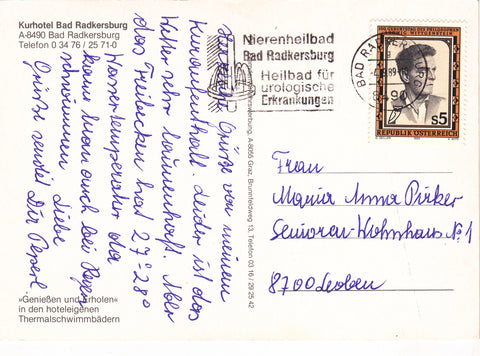 Kurhotel Bad Radkersburg
A-8490 Bad Radkersburg
Telefon 0 34 76 / 25 71-0
Herzliche Grüße von meinem
Kuraufenthalt. Leider ist das
Wetter sehr launenhaft. Aber
das Freibecken hat 27° 28°
Wassertemperatur da
kann man auch bei Regen
schwimmen Liebe
Grüße sendet Dir Peperl.
»Genießen und Erholen«
in den hoteleigenen
Thermalschwimmbädern
A-8055 Graz, Brunnfeldweg 13, Telefon 03 16 / 29 25 42
Nierenheilbad
Bad Radkersburg
Heilbad für
urologische
Erkrankungen
BAD RADKERS
89
8490
100. GEBURTSTAG DES PHILOSOPHEN
LUDWIG WITTGENSTEIN
S5
REPUBLIK ÖSTERREICH
Frau
Maria Anna Pirker
Senioren-Wohnhaus No 1
8700 Leoben